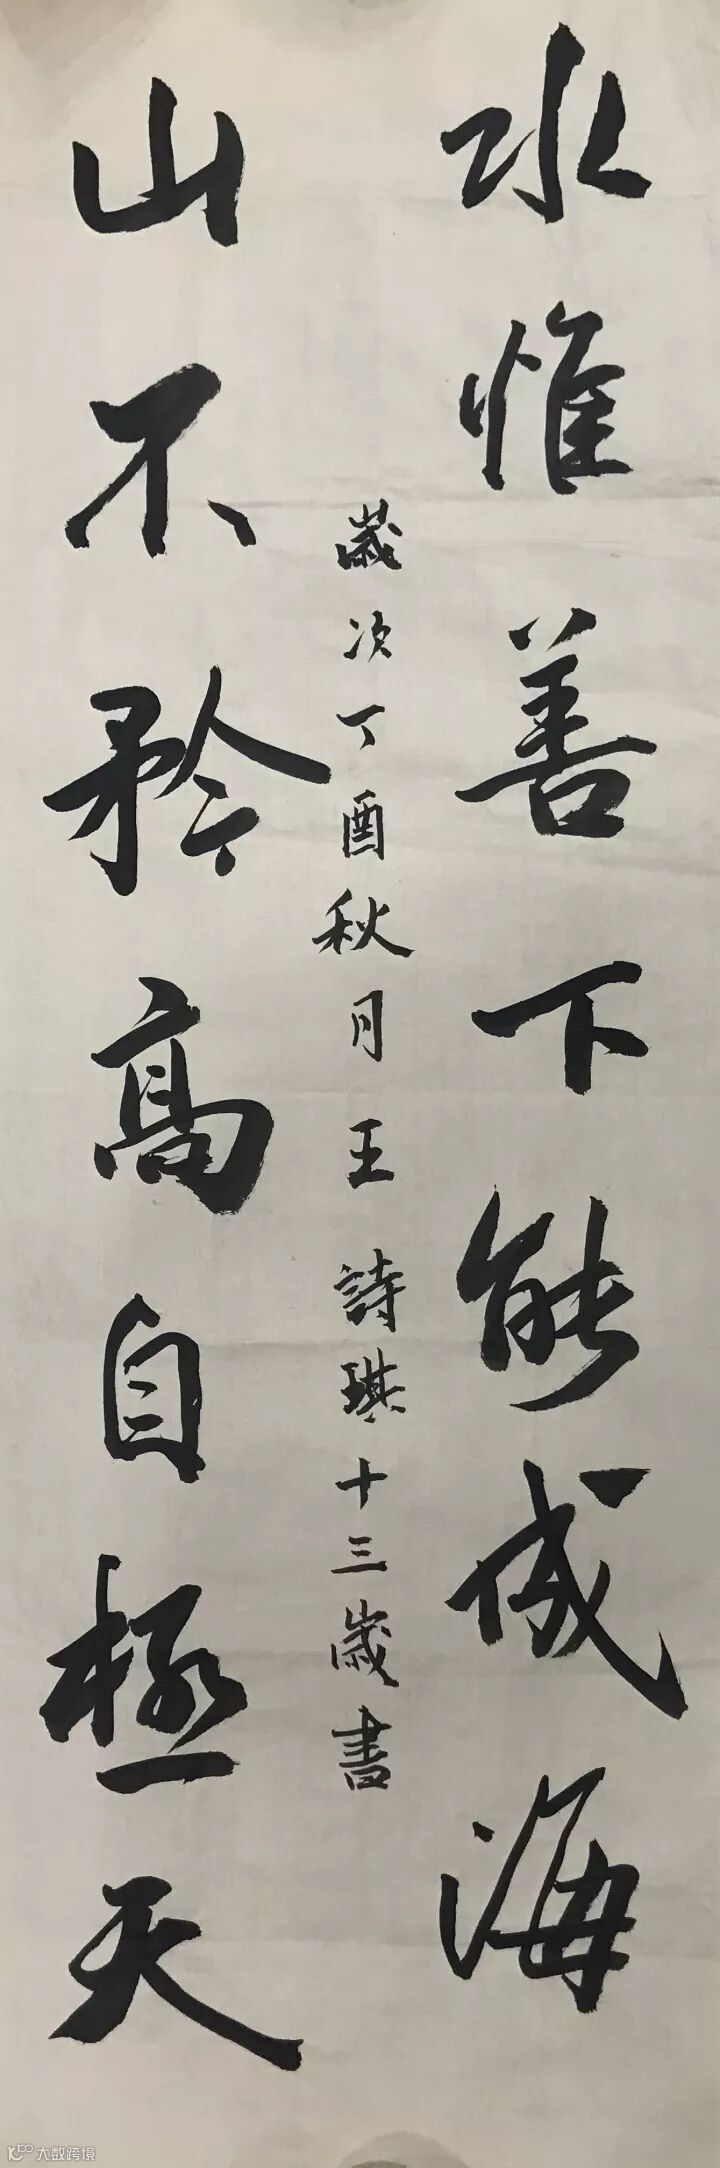 水惟善下能成海
山不矜高自極天
歲次丁酉秋月王詩琪十三歲書
大数跨境